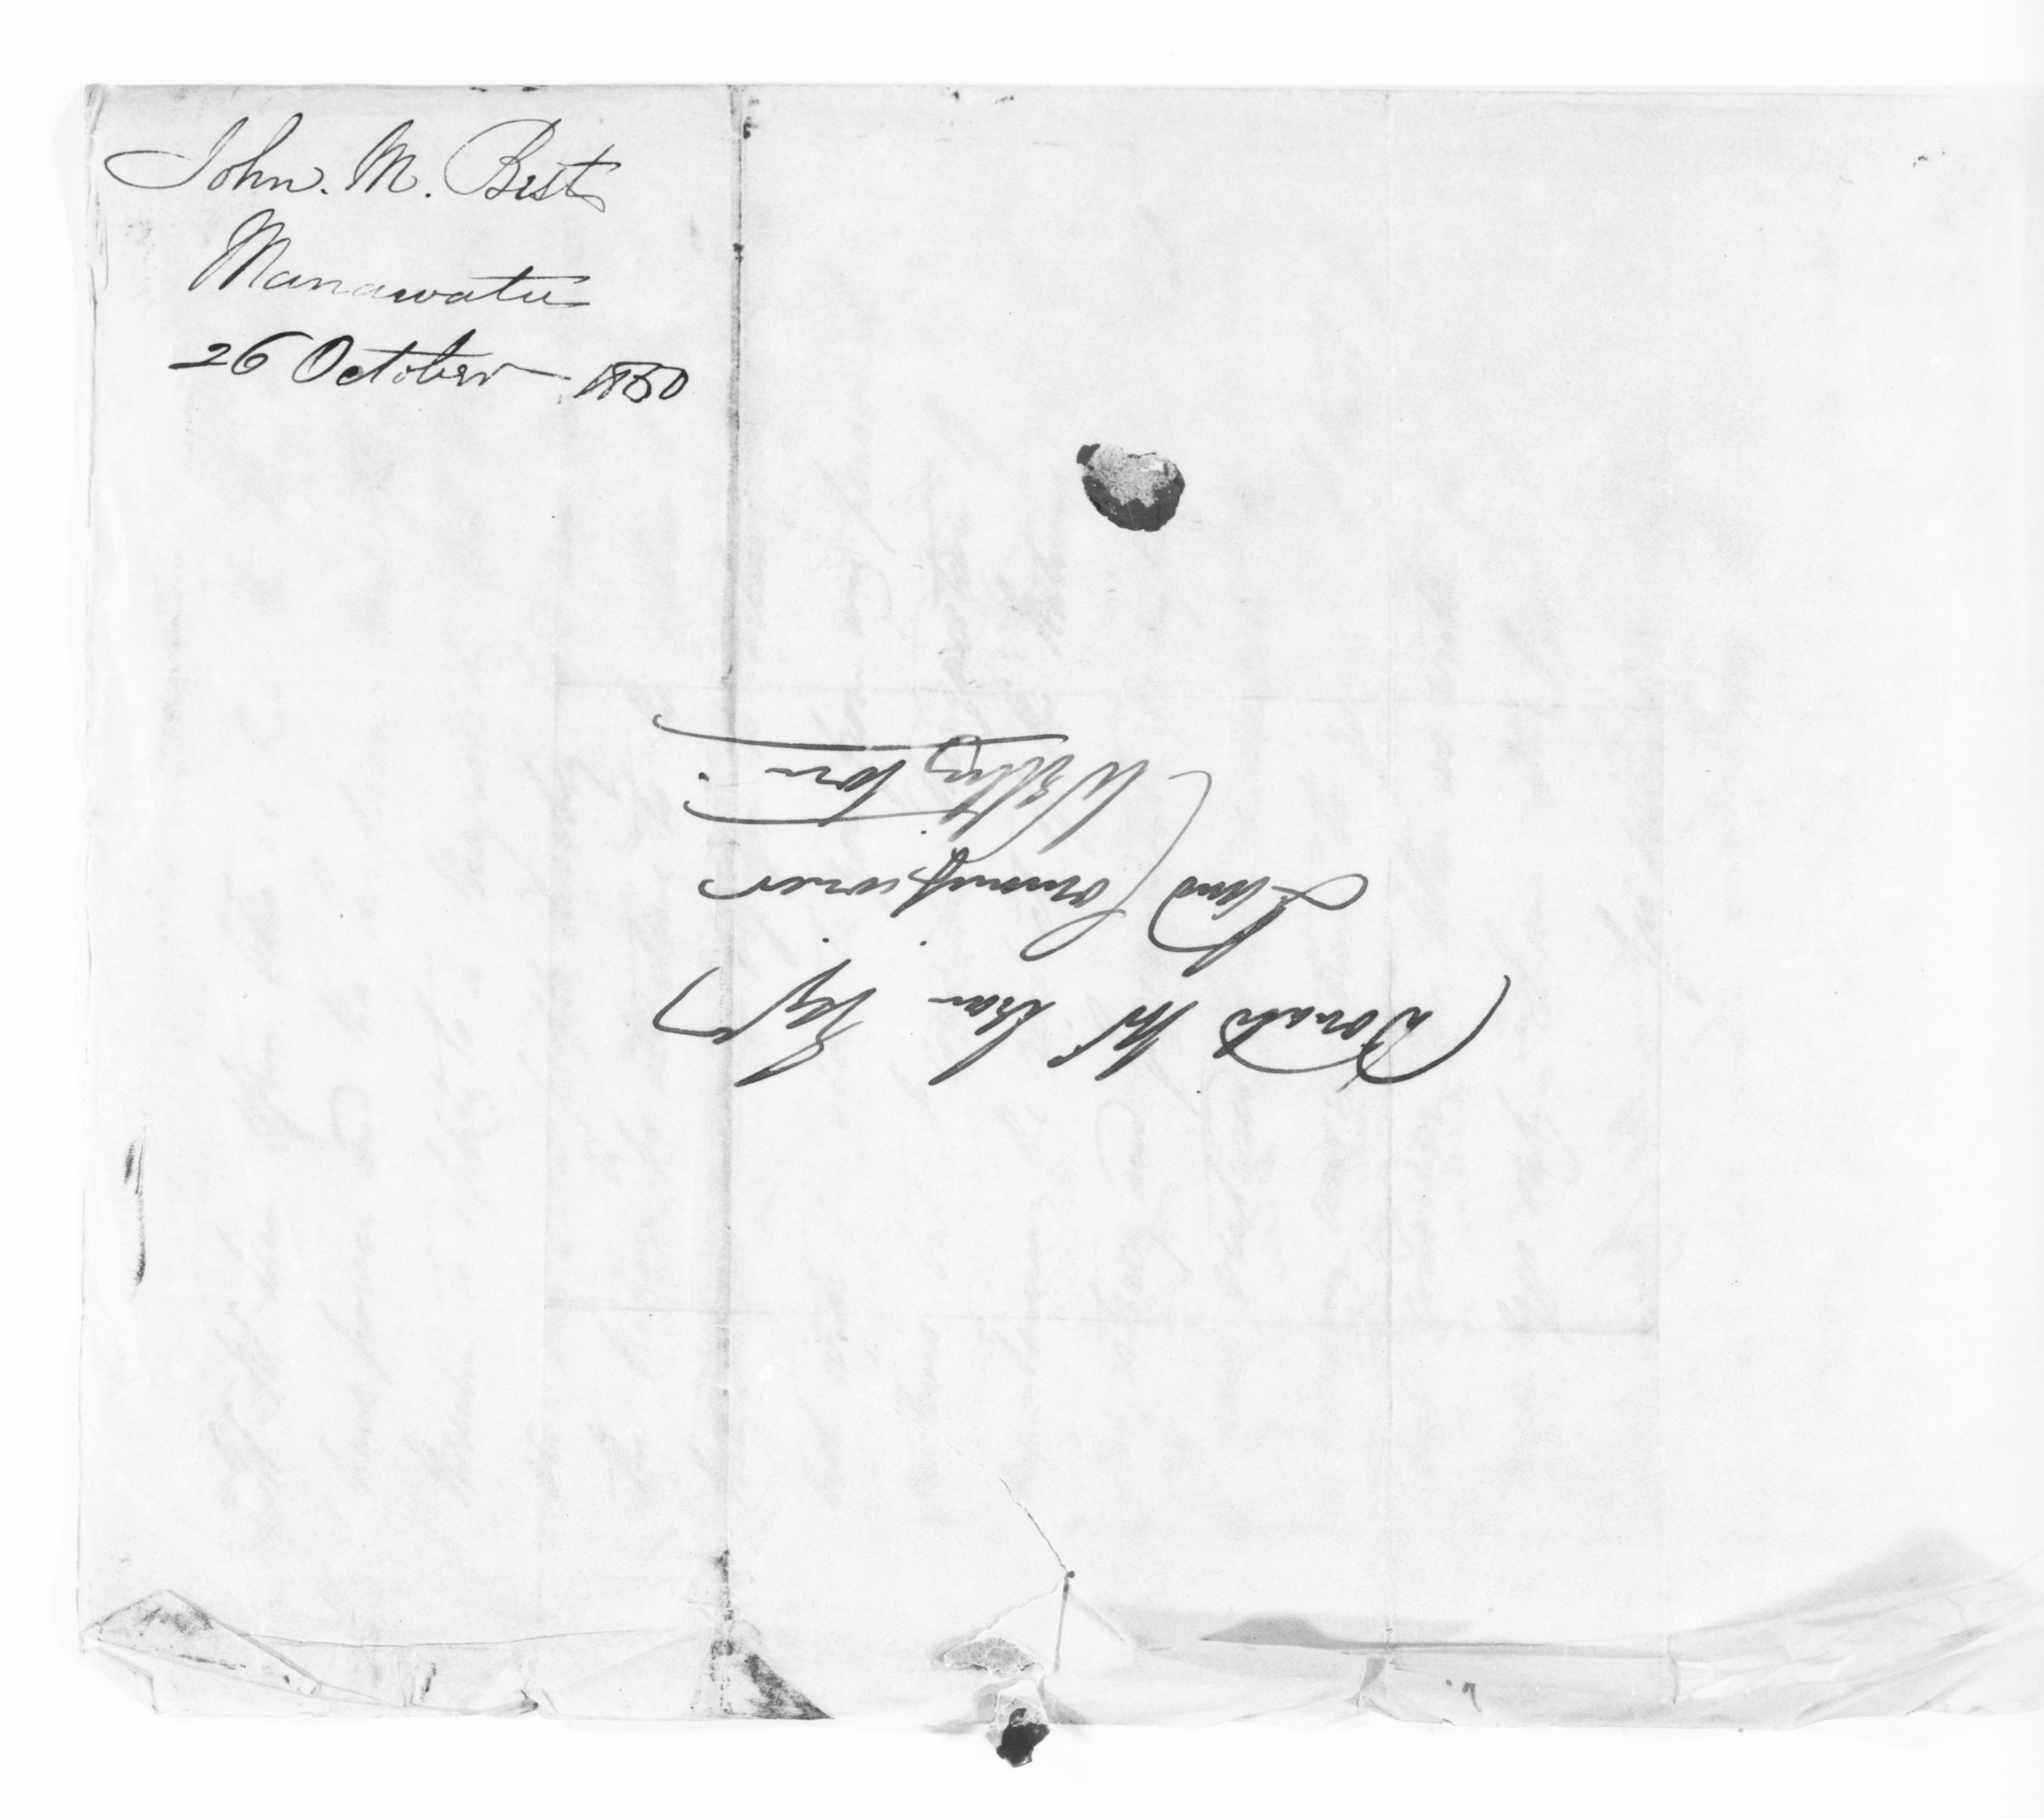 John. M. Best
Manawatu
26 October 1850
Donald McLean Esqr
Land Commissioner
Wellington.